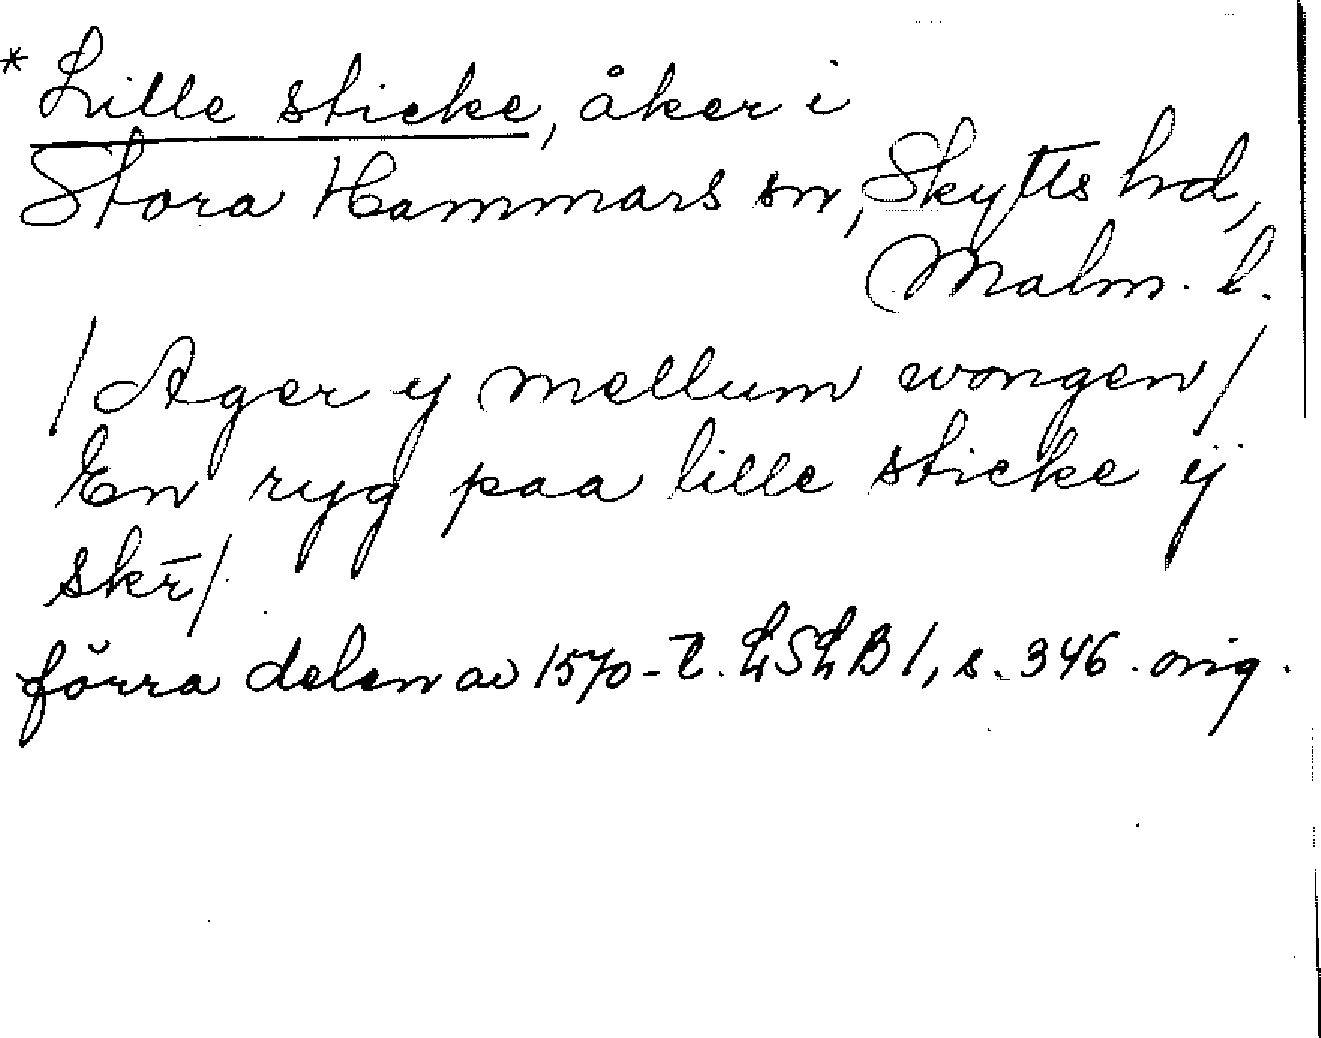 * Lille sticke, åker i
Stora Hammars sn, Skytts hd,
Malm. l.
/Ager y mellum wongen/
En ryg paa lille sticke ij
skr̄/.
förra delen av 1570-t. LSLB 1, s. 346. orig.